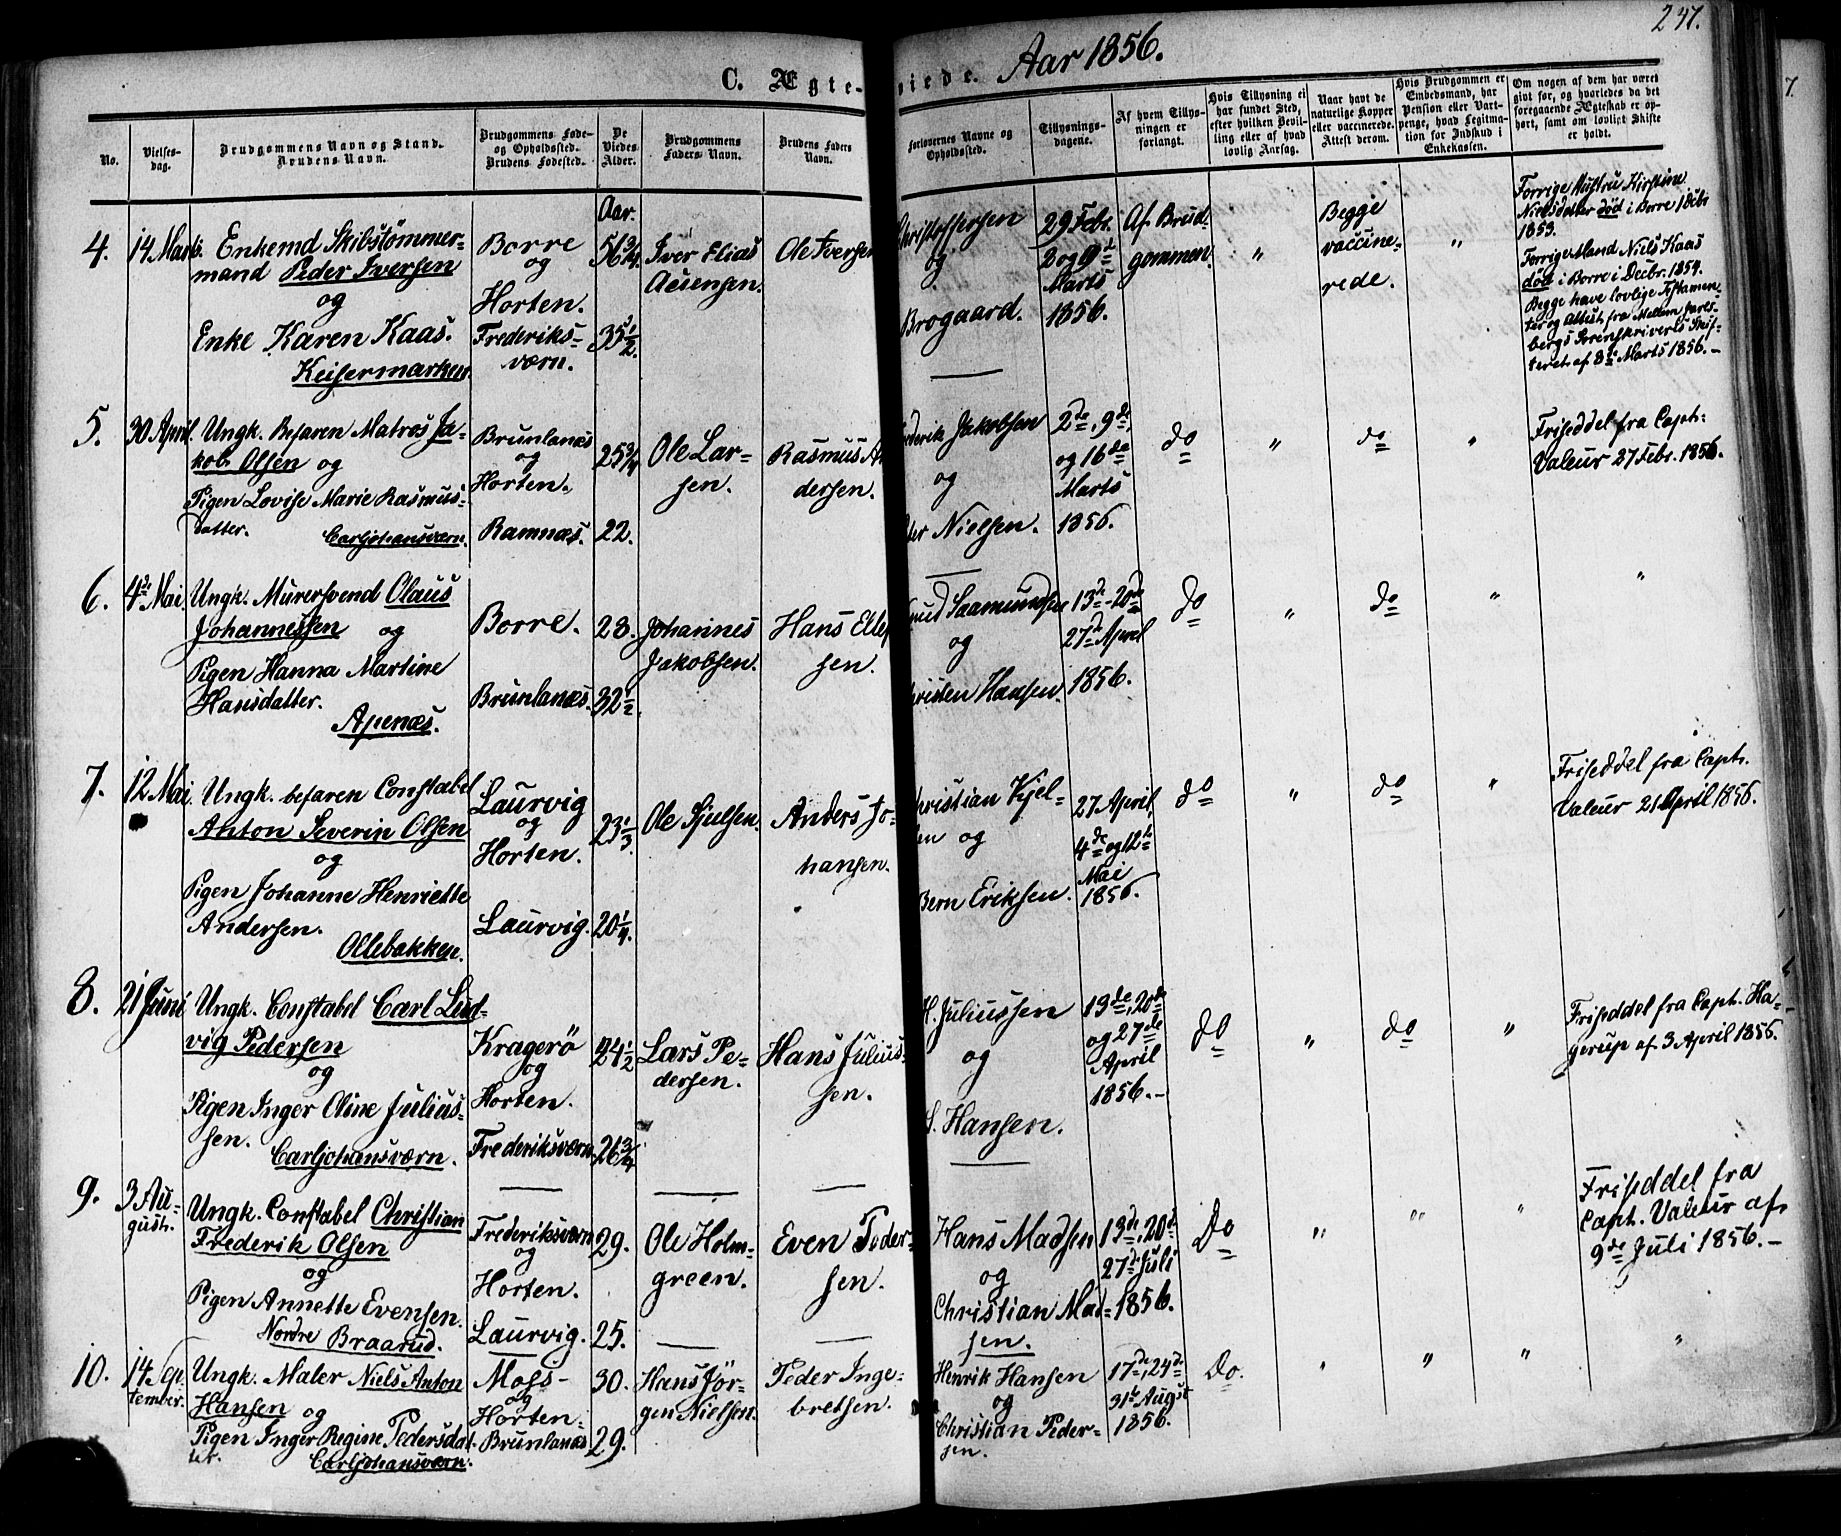 247.
C. Ægte-viede. Aar 1856.
No.
Vielses-
dag.
Brudgommens Navn og Stand.
Brudens Navn.
Brudgommens Føde-
og Opholdssted.
Brudens Fødested.
De
Viedes
Alder.
Brudgommens
Faders Navn.
Brudens Faders
Navn.
Forlovernes Navne og
Opholdssted.
Tillysnings-
dagene.
Af hvem Tillys-
ningen er
forlangt.
Hvis Tillysning ei
har fundet Sted,
efter hvilken Bevil-
ling eller af hvad
lovlig Aarsag.
Naar havt de
naturlige Kopper
eller vaccinerede.
Attest derom.
Hvis Brudgommen er
Embedsmand, har
Pension eller Vart-
penge, hvad Legitima-
tion for Indskud i
Enkekassen.
Om nogen af dem har været
gift før, og hvorledes da det
foregaaende Ægteskab er op-
hørt, samt om lovligt Skifte
er holdt.
4.
14 Marts.
Enkemd Skibstömmer-
mand Peder Iversen
og
Enke Karen Kaas.
Keisermarken.
Borre
og
Horten.
Frederiks-
værn.
Aar.
56 3/4
35 1/2.
Iver Elias
Aesensen.
Ole Iversen
Christoffersen
og
Brogaard.
29 Febr.
2 og 9de
Marts
1856.
Af Brud-
gommen.
"
Begge
vaccine-
rede.
"
Forrige Hustru Kirstine
Nielsdatter død i Borre
1853.
Forrige Mand Niels Kaas
død i Borre i Decbr. 1854.
Begge have lovlige Testamen-
ter og Attest fra
bergs Sorenskriveris Skif-
teret af 8de Marts 1856.-
5.
30 April.
Ungk. Befaren Matros Ja-
kob Olsen og
Pigen Lovise Marie Rasmus-
datter.
Carljohansværn.
Brunlanæs
og
Horten.
Ramnæs.
25 3/4
22.
Ole Lar-
sen.
Rasmus An
dersen.
ederik Jakobsen
og
der Nielsen.
2de, 9de
og 16de
Marts
1856.
do
"
do
"
Friseddel fra Capt:
Valeur 27 Febr. 1856.
6.
4de Mai
Ungk. Murersvend Olaus
Johannessen og
Pigen Hanna Martine
Hansdatter.
Apenæs.
Borre.
Brunlanæs.
28.
32 1/2
Johannes
Jakobsen.
Hans Ellef
sen.
nud Saamundsen
og
hristen Hansen.
13de-20de
27de April
1856.
do
"
do
"
"
7.
12 Mai
Ungk. befaren Constabel
Anton Severin Olsen
og
Pigen Johanne Henriette
Andersen.
Ollebakken.
Laurvig
og
Horten.
Laurvig.
23 1/3
20 1/4.
Ole Sjulsen.
Anders Jo-
hansen.
hristian Kjel-
sen og
Bern Eriksen.
27 April,
4de og 12te
Mai
1856.
do
"
do
"
Friseddel fra Capt.
Valeur 21 April 1856.
8.
21 Juni
Ungk. Constabel Carl Lud-
vig Pedersen
og
Pigen Inger Oline Julius-
sen.
Carljohansværn.
Kragerö
og
Horten.
Frederiksværn.
24 1/2
26 3/4
Lars Pe-
dersen.
Hans Julius-
sen.
H. Juliussen
og
S. Hansen.
13de, 20de
og 27de
April
1856.-
do
"
do
"
Friseddel fra Capt. Ha-
gerup af 3 April 1856.
9.
3 Au-
gust.
Ungk. Constabel Christian
Frederik Olsen
og
Pigen Annette Evensen.
Nordre Braarud.
Frederiksværn
og
Horten.
Laurvig.
29.
25.
Ole Holm-
green.
Even Peder-
sen.
Hans Madsen
og
Christian Mad-
sen.
13de, 20de
27de Juli
1856.
Do
"
"
"
Friseddel fra
Capt. Valeur af
9de Juli 1856.-
10.
14 Sep-
tember.
Ungk. Maler Niels Anton
Hansen og
Pigen Inger Regine Pedersdat-
ter.
Carljohansværn.
Moss-
og
Horten.
Brunlanæs
30.
29.
Hans Jör-
gen Nielsen.
Peder Inge-
bretsen.
Henrik Hansen
og
Christian Peder-
sen.
17de, 24de
31te August
1856.
Do.
"
"
"
"
7.